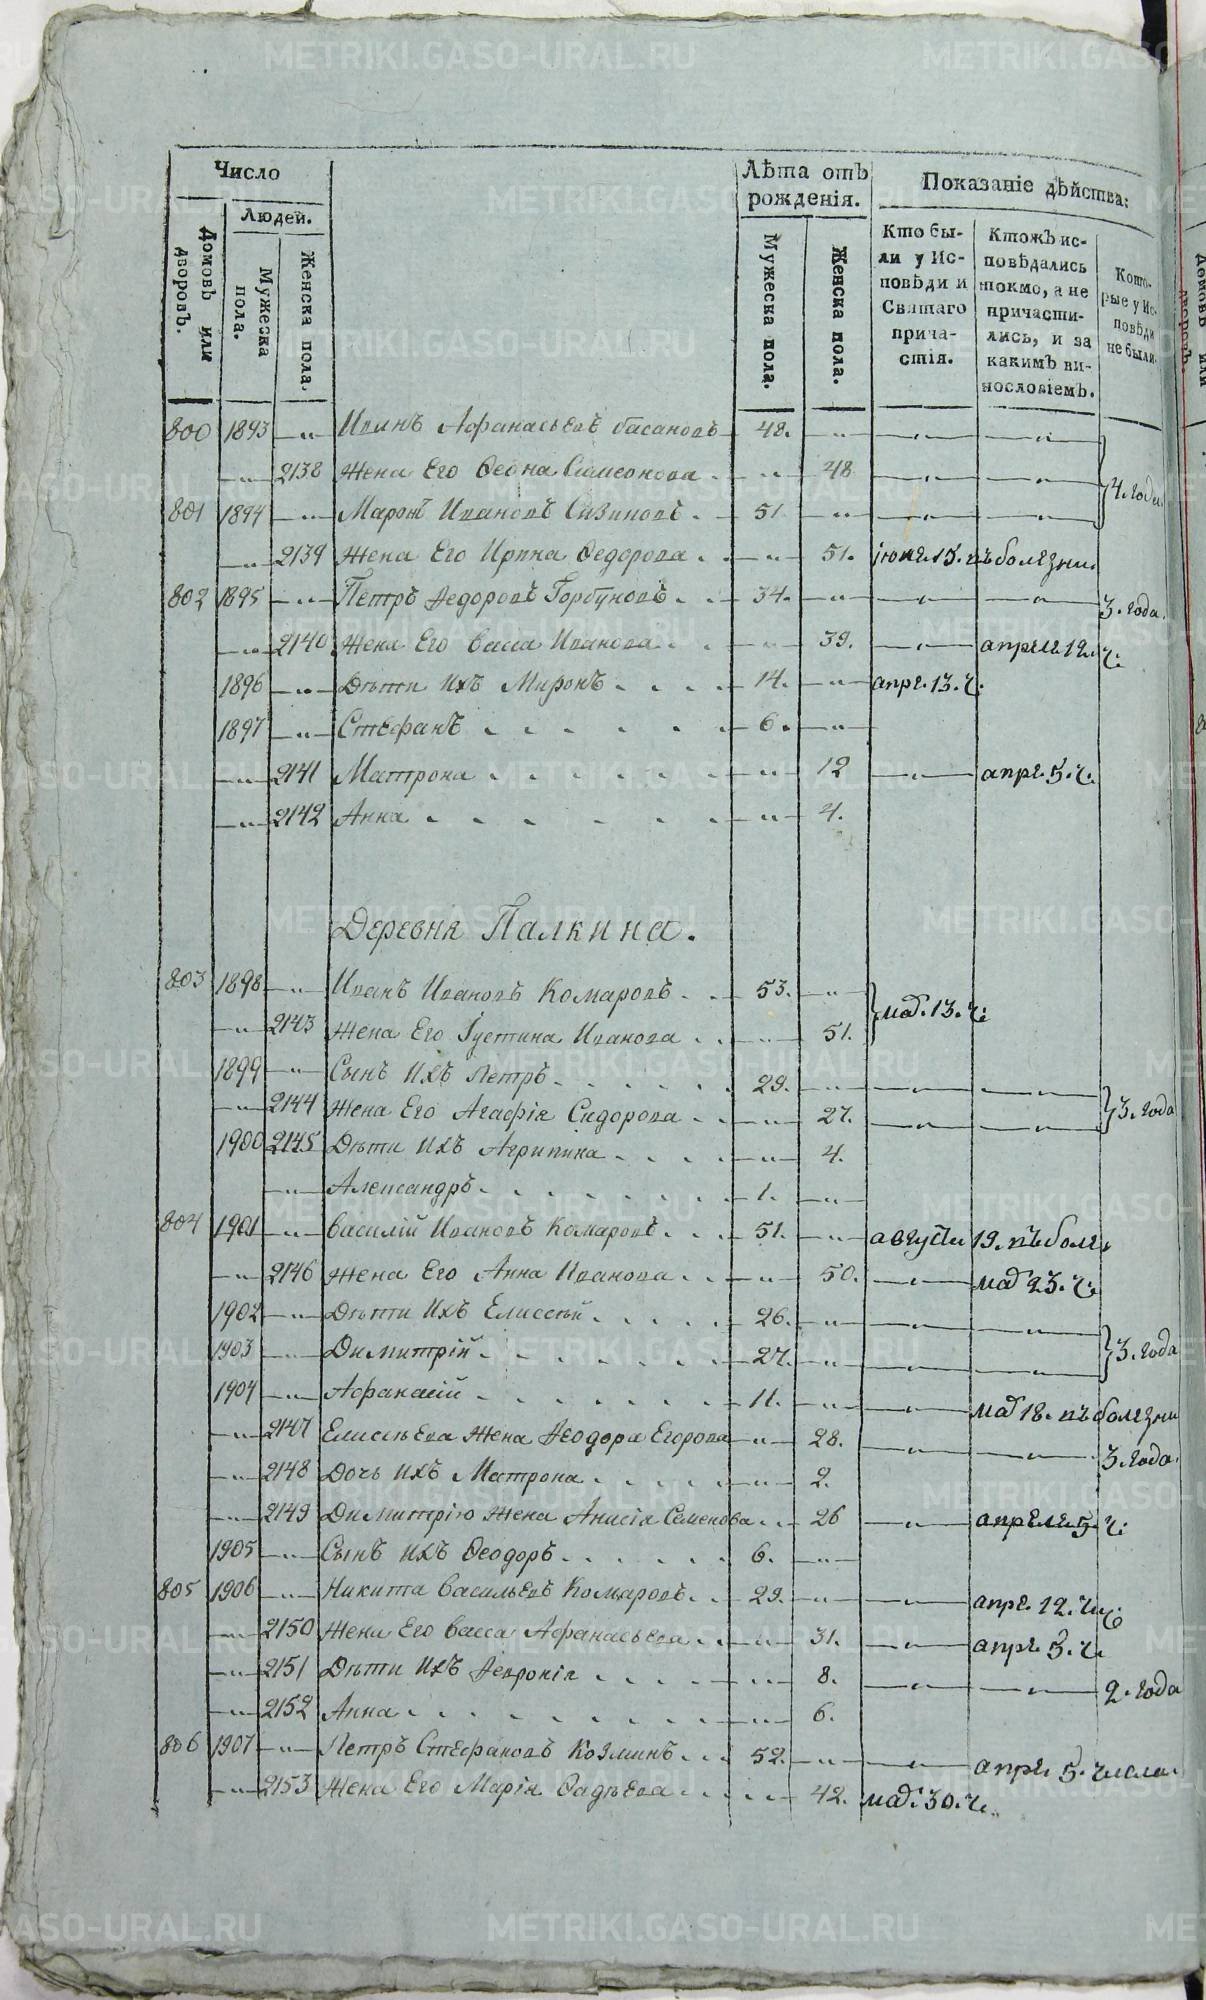 METRIKI.GASO-URAL.RU
Число
Людей.
Домовъ или дворовъ.
Мужеска пола.
Женска пола.
Лѣта отъ рожденія.
Мужеска пола.
Женска пола.
Показаніе дѣйства:
Кто бы-
ли у Ис-
повѣди и
Святаго
прича-
стія.
Ктожъ ис-
повѣдались
токмо, а не
причасти-
лись, и за
какимъ ви-
нословіемъ.
Кото-
рые у Ис-
повѣди
не были.
800 1893 —„— Иванъ Афанасьевъ Басановъ 48. —„— —„— —„—
—„— 2138 Жена Его Феона Самсонова —„— 48 —„— —„— 4. года.
801 1894 —„— Маронъ Ивановъ Сизиковъ 51 —„— —„— —„—
—„— 2139 Жена Его Ирина Федорова —„— 51. іюне. 15. въ болезни.
802 1895 —„— Петръ Федоровъ Горбуновъ 34. —„— —„— —„— 3. года.
—„— 2140 Жена Его Васса Иванова —„— 39. —„— апреле 12. ч:
1896 —„— Дѣти Ихъ Миронъ 14. —„— апре. 13. ч:
1897 —„— Стефанъ 6. —„—
—„— 2141 Матрона —„— 12 —„— апре. 5. ч.
—„— 2142 Анна —„— 4.
Деревня Палкина.
803 1898 —„— Иванъ Ивановъ Комаровъ 53. —„— маѣ. 13. ч:
—„— 2143 Жена Его Іустина Иванова —„— 51.
1899 —„— Сынъ Ихъ Петръ 29. —„— —„— —„—
—„— 2144 Жена Его Агафія Сидорова —„— 27. —„— —„— 3. года
1900 2145 Дѣти Ихъ Агрипина —„— 4.
—„— Александръ 1. —„—
804 1901 —„— Василій Ивановъ Комаровъ 51. —„— августа 19. въ боле:
—„— 2146 Жена Его Анна Иванова —„— 50. —„— маѣ 23. ч:
1902 —„— Дѣти Ихъ Елиссей 26. —„— —„— —„—
1903 —„— Димитрій 27. —„— —„— —„— 3. года
1904 —„— Афанасій 11. —„— —„— маѣ 18. въ болезни
—„— 2147 Елисѣева Жена Феодора Егорова —„— 28. —„— —„— 3. года.
—„— 2148 Дочь Ихъ Матрона —„— 2.
—„— 2149 Димитрію Жена Анисія Семенова 26 —„— апреле 5. ч:
1905 —„— Сынъ Ихъ Феодоръ 6. —„—
805 1906 —„— Никита Васильевъ Комаровъ 29. —„— —„— апре. 12. чи:
—„— 2150 Жена Его Васса Афанасьева —„— 31. —„— апре 5. ч.
—„— 2151 Дѣти Ихъ Февронія —„— 8. —„— —„— 2. года
—„— 2152 Анна —„— 6.
806 1907 —„— Петръ Стефановъ Козминъ 52. —„— —„— апре. 5. числа.
—„— 2153 Жена Его Марія Фадѣева 42. маѣ. 30. ч.